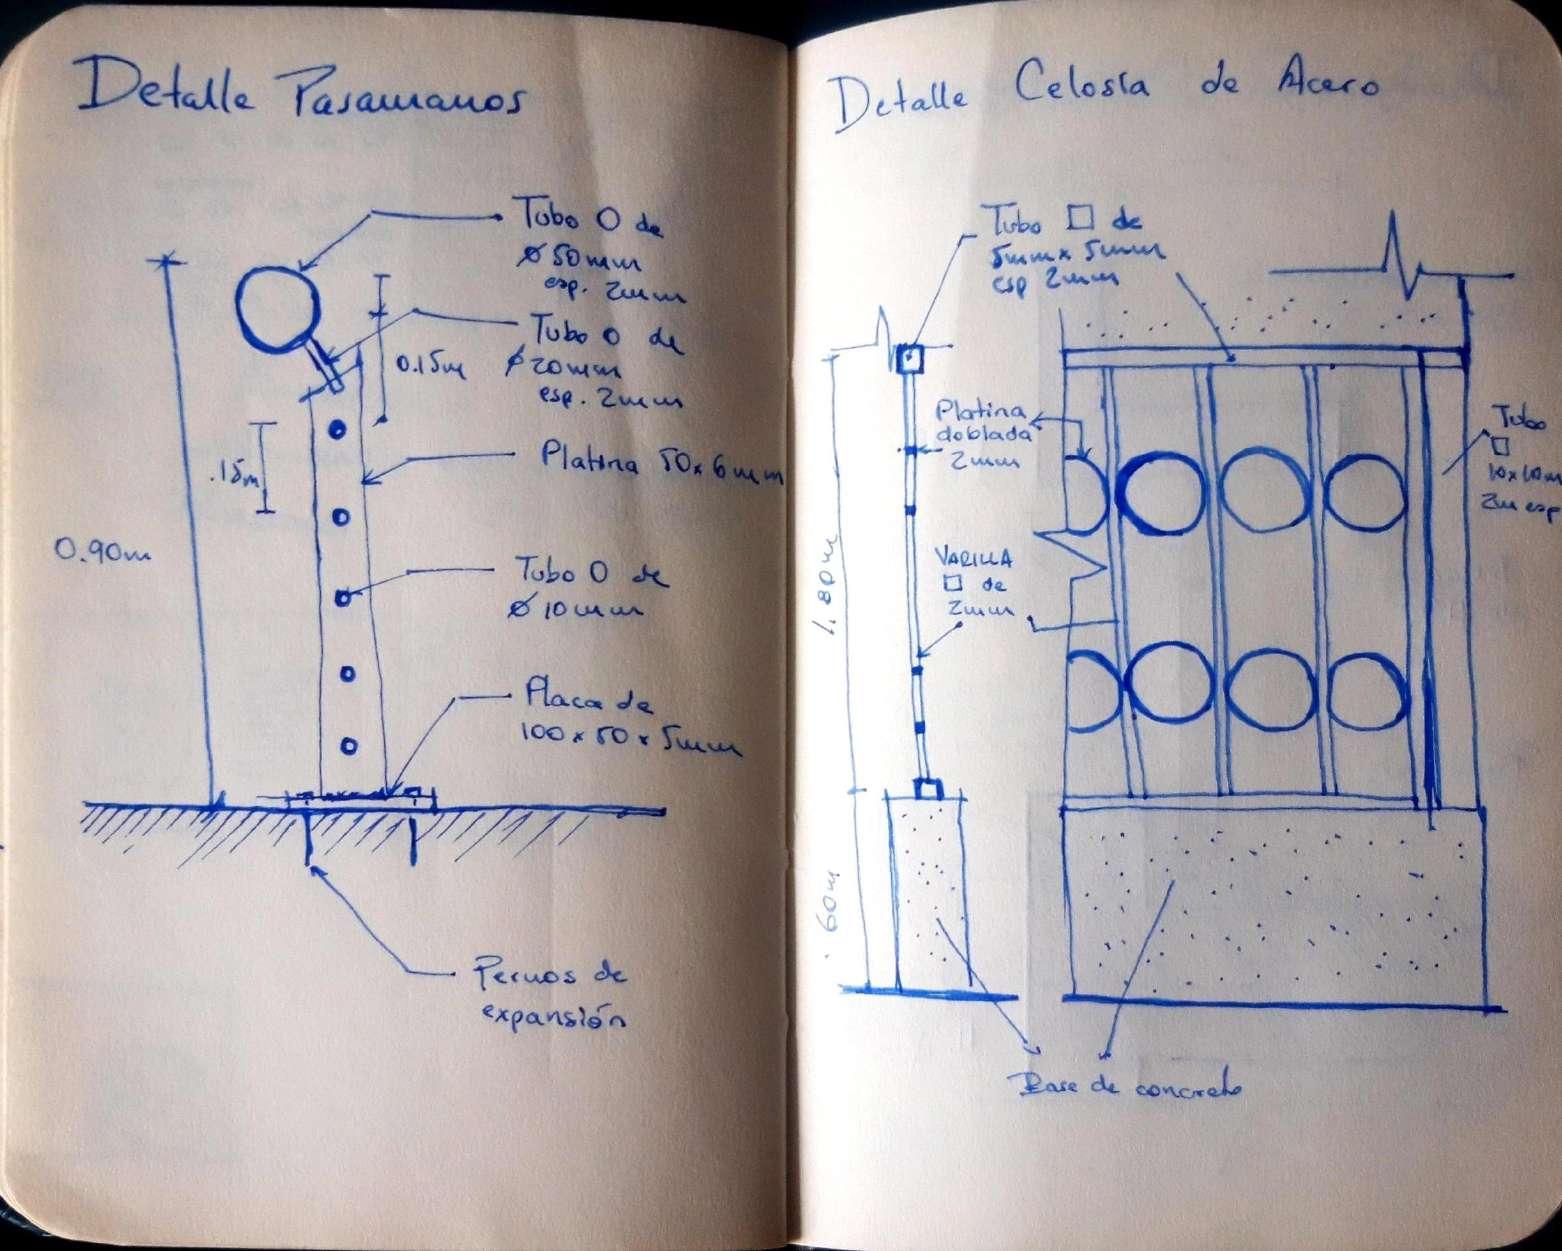 Detalle Pasamanos
Tubo O de
Ø50mm
esp. 2mm
Tubo O de
Ø20mm
esp. 2mm
0.15m
.15m
Platina 50x6mm
0.90m
Tubo O de
Ø10mm
Placa de
100x50x5mm
Pernos de
expansión
Detalle Celosía de Acero
Tubo □ de
5mmx5mm
esp 2mm
Platina
doblada
2mm
Tubo
□
10x10m
2m esp
VARILLA
□ de
2mm
1.80m
.60m
Base de concreto